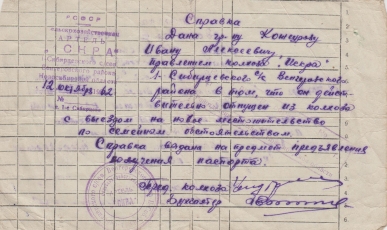 РСФСР
АРТЕЛЬ
"ИСКРА"
Новосибирской области
12 октября 62
№
Справка
Дана гр-ну
Ивану Алексеевичу
правлением колхоза "Искра"
1-Сибирцевского с/с Венгеровского
района в том, что он дейст-
вительно отпущен из колхоза
с выездом на новое местожительство
по семейным обстоятельствам.
Справка выдана на предмет предъявления
получения паспорта.
Пред. колхоза
Бухгалтер